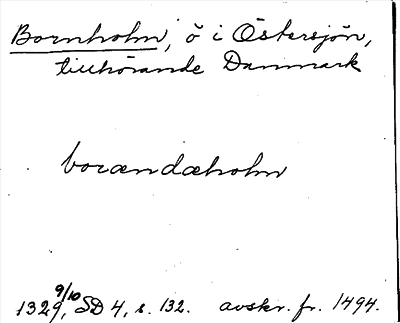 Bornholm, ö i Östersjön,
tillhörande Danmark
borændæholm
1329 9/10, SD 4, s. 132. avskr. fr. 1494.